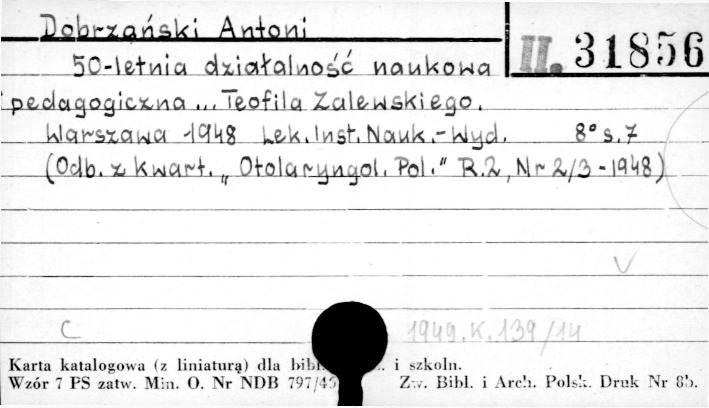 Dobrzański Antoni
II. 31856
50-letnia działalność naukowa
pedagogiczna ... Teofila Zalewskiego.
Warszawa 1948 Lek. Inst. Nauk.-Wyd. 8° s. 7
(Odb. z kwart. „Otolaryngol. Pol." R.2, Nr 2/3 - 1948)
V
C 1949.K.139/14
Karta katalogowa (z liniaturą) dla i szkoln.
Wzór 7 PS zatw. Min. O. Nr NDB Zw. Bibl. i Arch. Polsk. Druk Nr 8b.